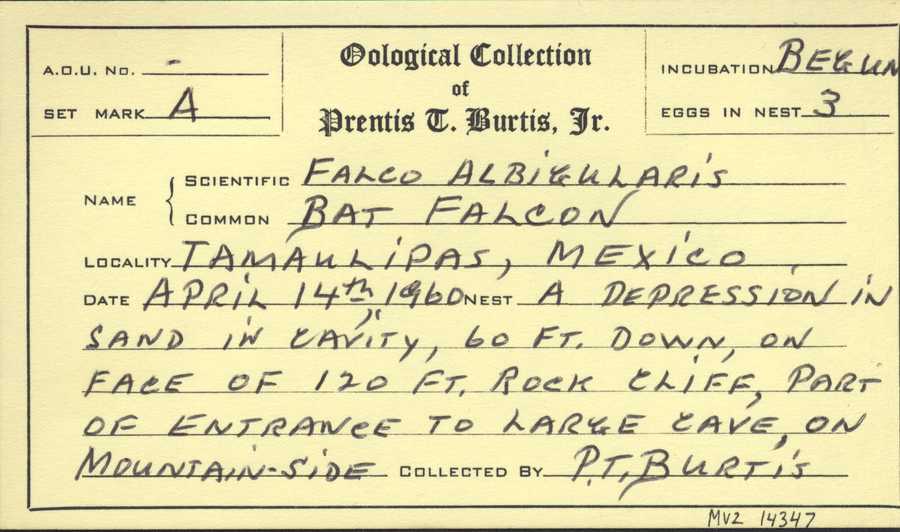 A.O.U. No. -
Oological Collection
of
Prentis T. Burtis, Jr.
INCUBATION BEGUN
SET MARK A
EGGS IN NEST 3
NAME { SCIENTIFIC FALCO ALBIGULARIS
COMMON BAT FALCON
LOCALITY TAMAULIPAS, MEXICO
DATE APRIL 14th, 1960 NEST A DEPRESSION IN
SAND IN CAVITY, 60 FT. DOWN, ON
FACE OF 120 FT. ROCK CLIFF, PART
OF ENTRANCE TO LARGE CAVE, ON
MOUNTAIN-SIDE COLLECTED BY P.T. BURTIS
MVZ 14347